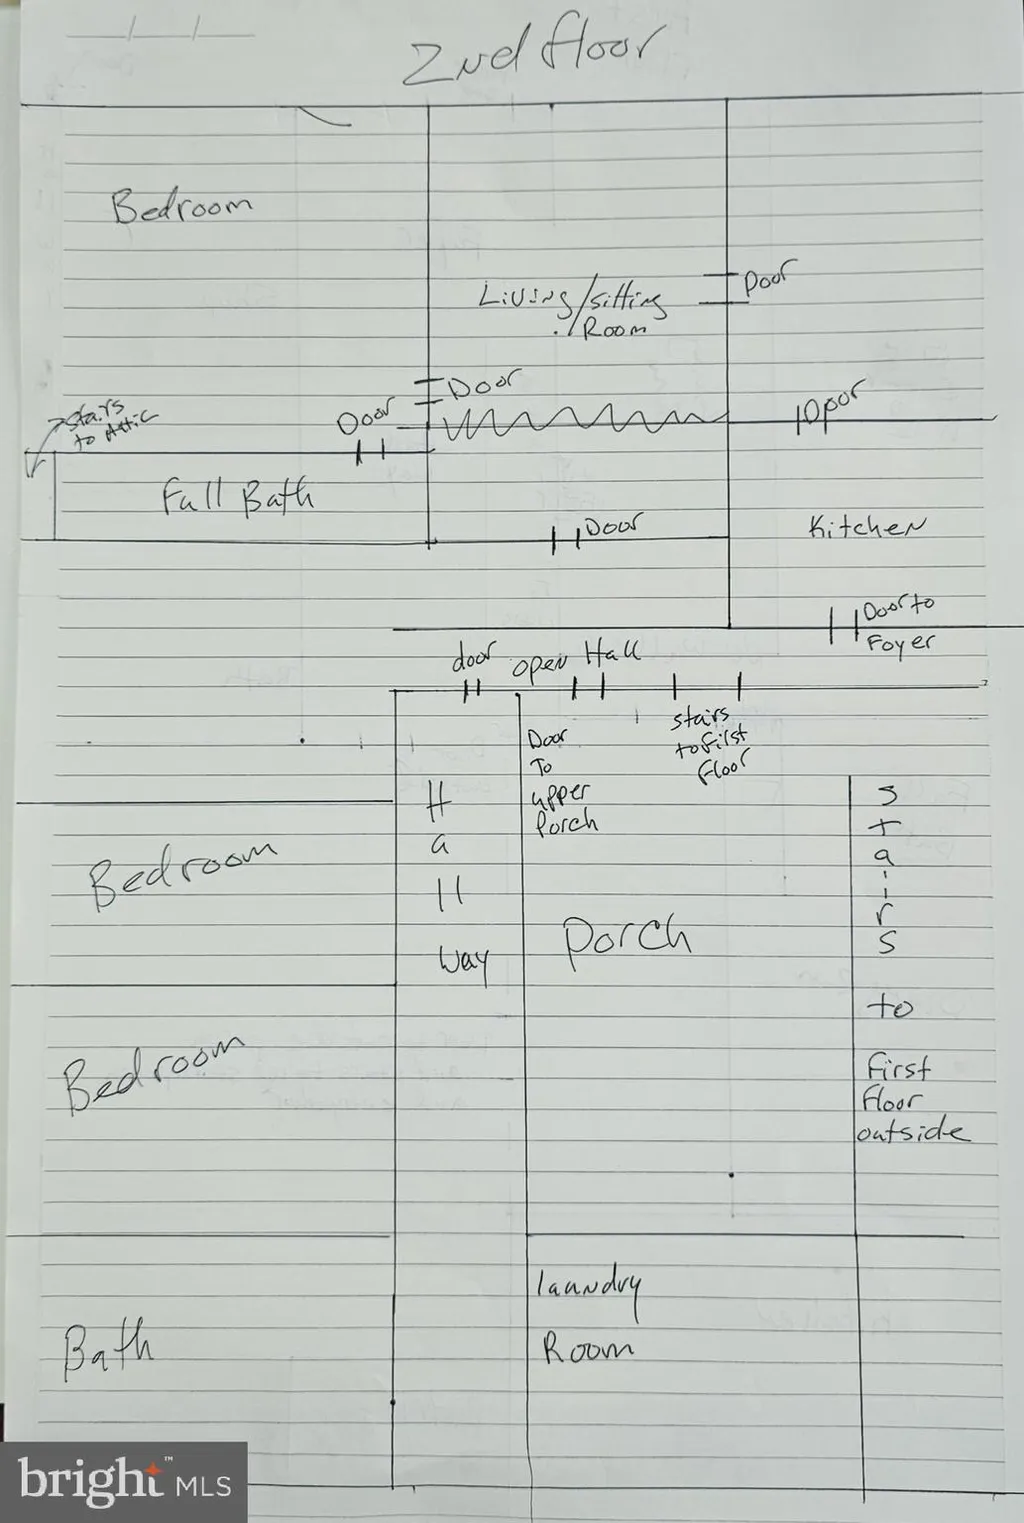 2nd floor
Bedroom
Living/sitting
Room
Door
Door
Door
Door
stairs
to Attic
Full Bath
Door
Kitchen
Door to
Foyer
door
open Hall
Door
To
upper
Porch
stairs
to first
Floor
H
a
ll
way
S
t
a
i
r
s
to
first
floor
outside
Bedroom
Porch
Bedroom
laundry
Room
Bath
bright™ MLS